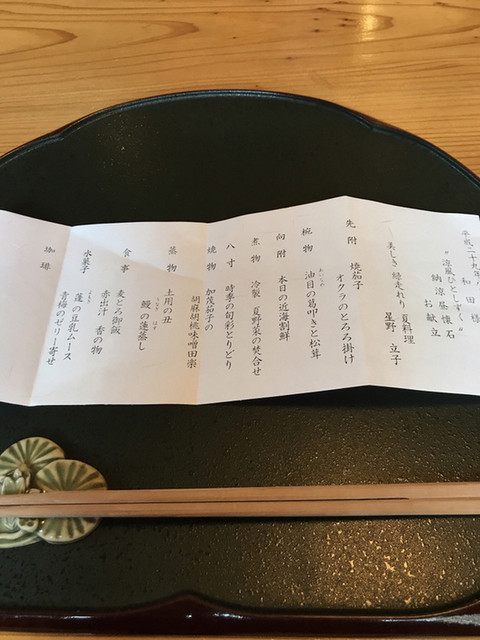 平成二十九年
和田様
“涼風ひとしずく”
納涼 昼懐石
お献立
美しき 緑走れり 夏料理
星野 立子
先附 焼茄子
オクラのとろろ掛け
椀物 油目の葛叩きと松茸
向附 本日の近海割鮮
煮物 冷製 夏野菜の焚合せ
八寸 時季の旬彩とりどり
焼物 加茂茄子の
胡麻胡桃味噌田楽
蒸物 土用の丑
鰻の蓮蒸し
食事 麦とろ御飯
赤出汁 香の物
水菓子 蓬の豆乳ムース
青梅のゼリー寄せ
珈琲